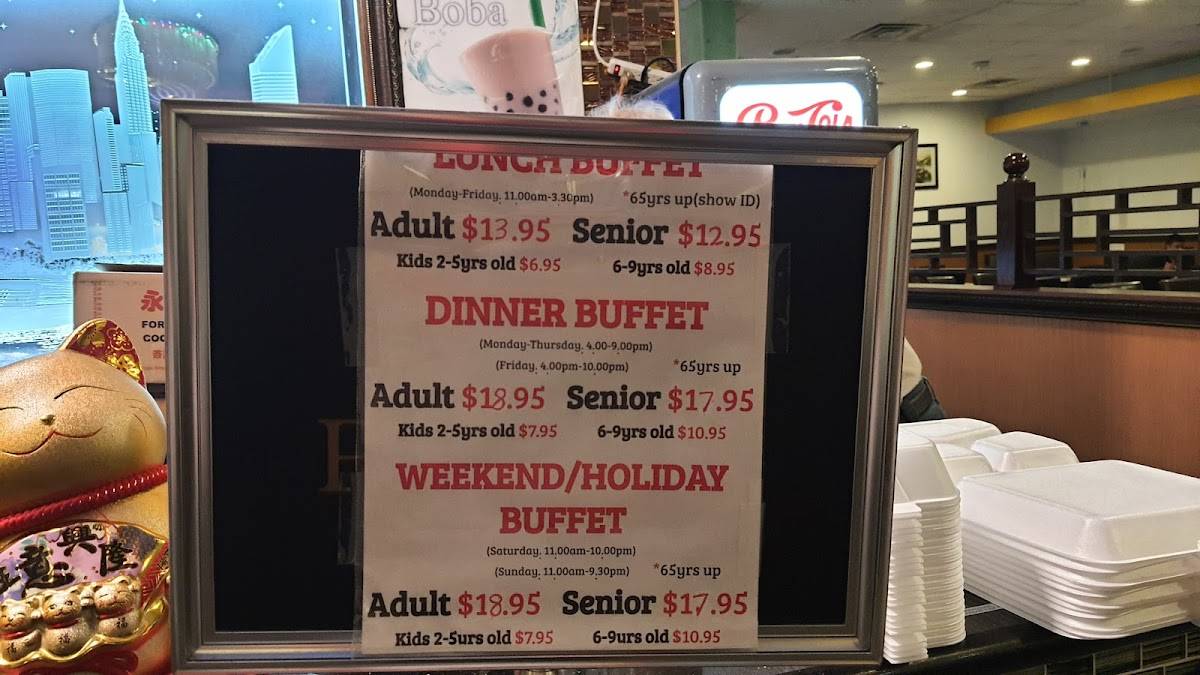 Boba
LUNCH BUFFET
(Monday-Friday, 11.00am-3.30pm) *65yrs up(show ID)
Adult $13.95 Senior $12.95
Kids 2-5yrs old $6.95 6-9yrs old $8.95
DINNER BUFFET
(Monday-Thursday, 4.00-9.00pm)
(Friday, 4.00pm-10.00pm) *65yrs up
Adult $18.95 Senior $17.95
Kids 2-5yrs old $7.95 6-9yrs old $10.95
WEEKEND/HOLIDAY
BUFFET
(Saturday, 11.00am-10.00pm)
(Sunday, 11.00am-9.30pm) *65yrs up
Adult $18.95 Senior $17.95
Kids 2-5yrs old $7.95 6-9yrs old $10.95
永
FOR
興隆